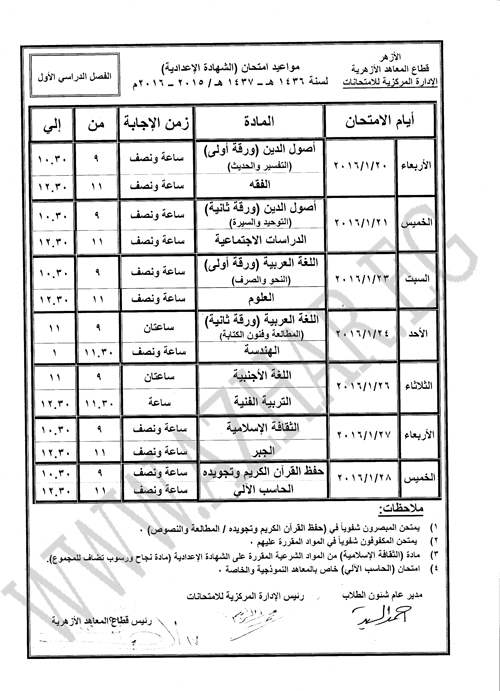 الأزهر
قطاع المعاهد الأزهرية
الإدارة المركزية للامتحانات
مواعيد امتحان (الشهادة الإعدادية)
لسنة ١٤٣٦ هـ - ١٤٣٧ هـ / ٢٠١٥ - ٢٠١٦م
الفصل الدراسي الأول
أيام الامتحان المادة زمن الإجابة من إلي
الأربعاء ٢٠١٦/١/٢٠ أصول الدين (ورقة أولى) ساعة ونصف ٩ ١٠.٣٠
(التفسير والحديث)
الفقه ساعة ونصف ١١ ١٢.٣٠
الخميس ٢٠١٦/١/٢١ أصول الدين (ورقة ثانية) ساعة ونصف ٩ ١٠.٣٠
(التوحيد والسيرة)
الدراسات الاجتماعية ساعة ونصف ١١ ١٢.٣٠
السبت ٢٠١٦/١/٢٣ اللغة العربية (ورقة أولى) ساعة ونصف ٩ ١٠.٣٠
(النحو والصرف)
العلوم ساعة ونصف ١١ ١٢.٣٠
الأحد ٢٠١٦/١/٢٤ اللغة العربية (ورقة ثانية) ساعتان ٩ ١١
(المطالعة وفنون الكتابة)
الهندسة ساعة ونصف ١١.٣٠ ١
الثلاثاء ٢٠١٦/١/٢٦ اللغة الأجنبية ساعتان ٩ ١١
التربية الفنية ساعة ١١.٣٠ ١٢.٣٠
الأربعاء ٢٠١٦/١/٢٧ الثقافة الإسلامية ساعة ونصف ٩ ١٠.٣٠
الجبر ساعة ونصف ١١ ١٢.٣٠
الخميس ٢٠١٦/١/٢٨ حفظ القرآن الكريم وتجويده ساعة ونصف ٩ ١٠.٣٠
الحاسب الآلي ساعة ونصف ١١ ١٢.٣٠
ملاحظات:
١) يمتحن المبصرون شفوياً في (حفظ القرآن الكريم وتجويده / المطالعة والنصوص) ٠
٢) يمتحن المكفوفون شفوياً في المواد المقررة عليهم ٠
٣) مادة (الثقافة الإسلامية) من المواد الشرعية المقررة على الشهادة الإعدادية (مادة نجاح ورسوب تضاف للمجموع).
٤) امتحان (الحاسب الآلي) خاص بالمعاهد النموذجية والخاصة ٠
مدير عام شئون الطلاب رئيس الإدارة المركزية للامتحانات رئيس قطاع المعاهد الأزهرية
أحمد السيد
WWW.AZHAR.EG